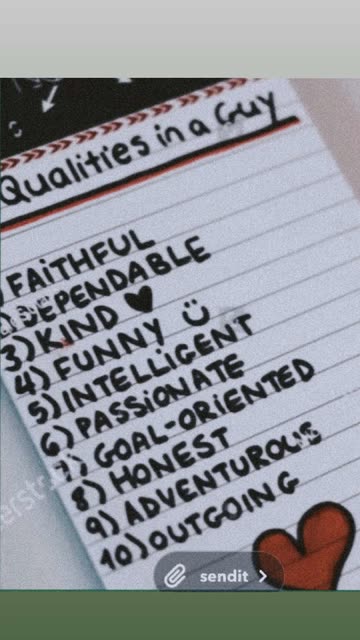 Qualities in a Guy
) FAiTHFUL
DEPENDABLE
3) KIND ♥
4) FUNNY
5) INTELLIGENT
6) PASSiONATE
7) GOAL-ORiENTED
8) HONEST
9) ADVENTUROUS
10) OUTGOING
sendit